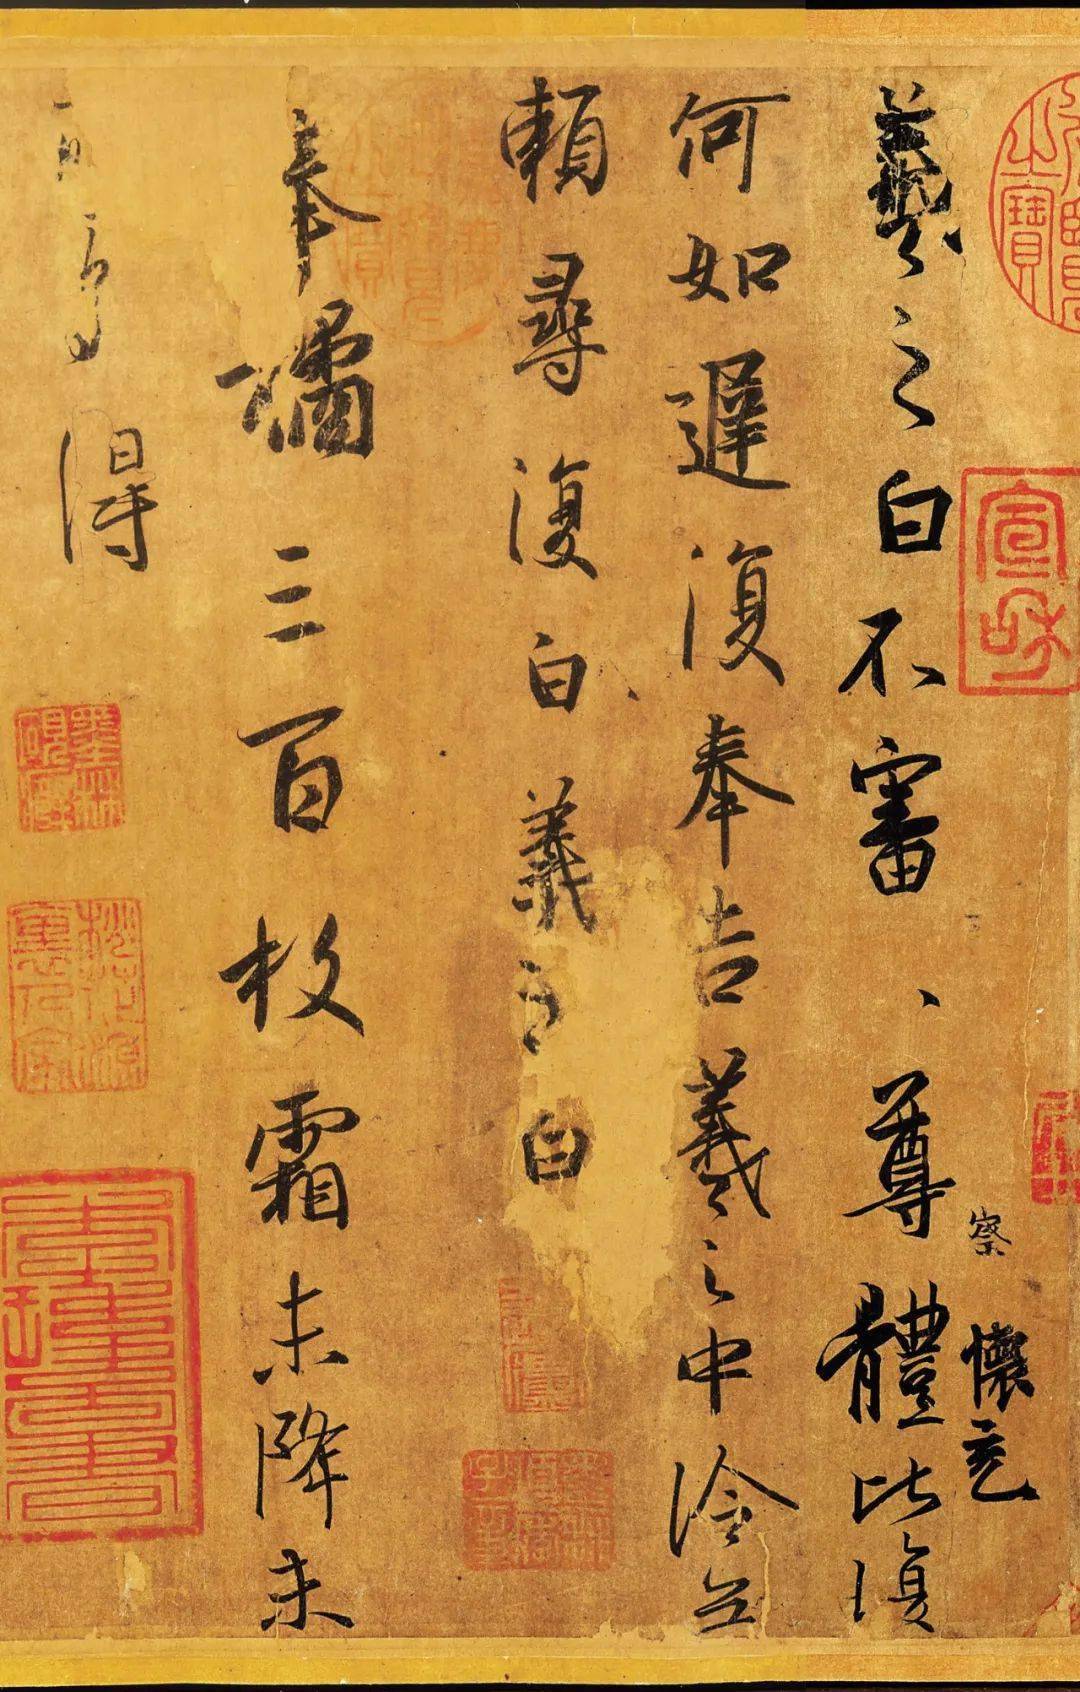 察
懷充
羲之白不審、尊體比復
何如遲復奉告羲之中冷無
賴尋復白羲之白
奉橘三百枚霜未降未
可多得
宣和